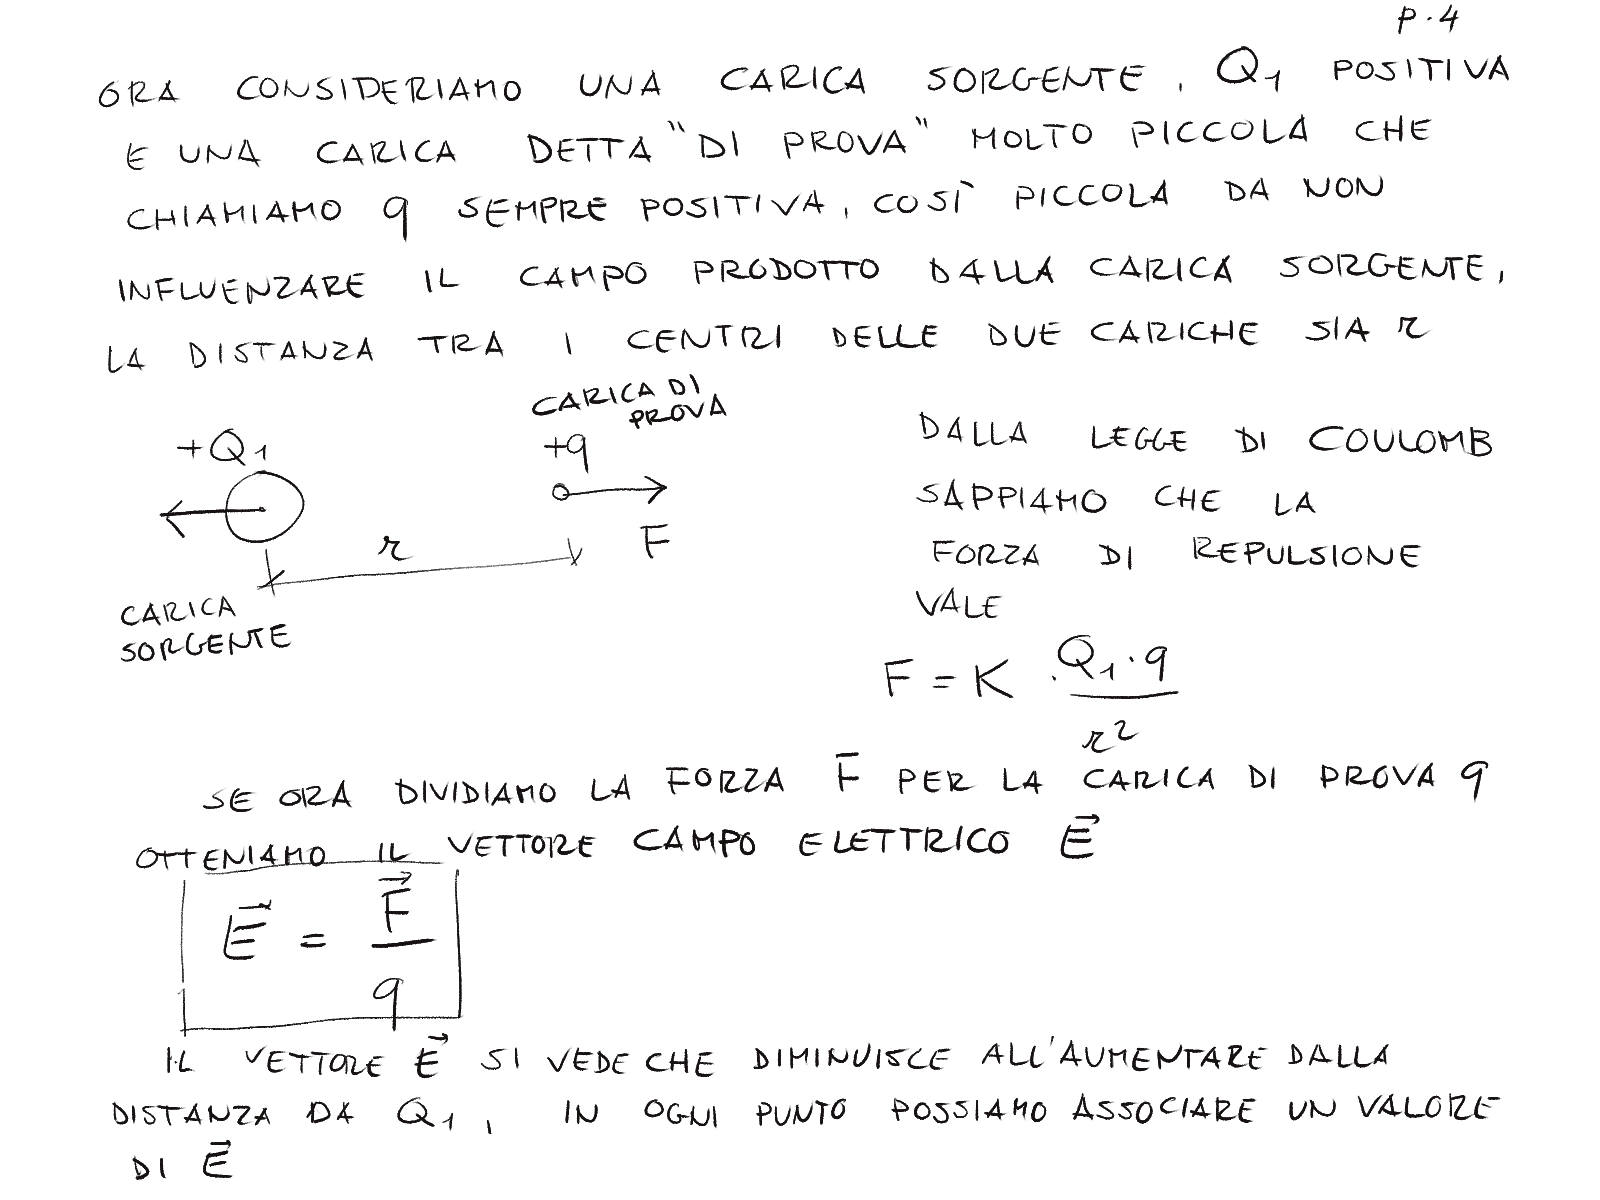 P.4
ORA CONSIDERIAMO UNA CARICA SORGENTE, Q1 POSITIVA
E UNA CARICA DETTA "DI PROVA" MOLTO PICCOLA CHE
CHIAMIAMO q SEMPRE POSITIVA, COSÌ PICCOLA DA NON
INFLUENZARE IL CAMPO PRODOTTO DALLA CARICA SORGENTE,
LA DISTANZA TRA I CENTRI DELLE DUE CARICHE SIA r
CARICA DI
PROVA
+Q1
+q
r
F
CARICA
SORGENTE
DALLA LEGGE DI COULOMB
SAPPIAMO CHE LA
FORZA DI REPULSIONE
VALE
F = K · Q1·q / r²
SE ORA DIVIDIAMO LA FORZA F̄ PER LA CARICA DI PROVA q
OTTENIAMO IL VETTORE CAMPO ELETTRICO E⃗
E⃗ = F⃗ / q
IL VETTORE E⃗ SI VEDE CHE DIMINUISCE ALL'AUMENTARE DALLA
DISTANZA DA Q1, IN OGNI PUNTO POSSIAMO ASSOCIARE UN VALORE
DI E⃗